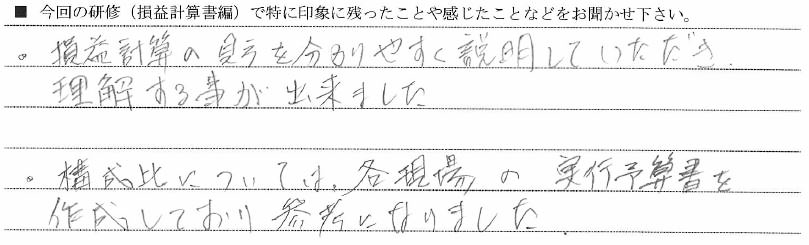 ■ 今回の研修（損益計算書編）で特に印象に残ったことや感じたことなどをお聞かせ下さい。
。損益計算の見方を分かりやすく説明していただき、
理解する事が出来ました
。構成比については、各現場の実行予算書を
作成しており参考になりました。